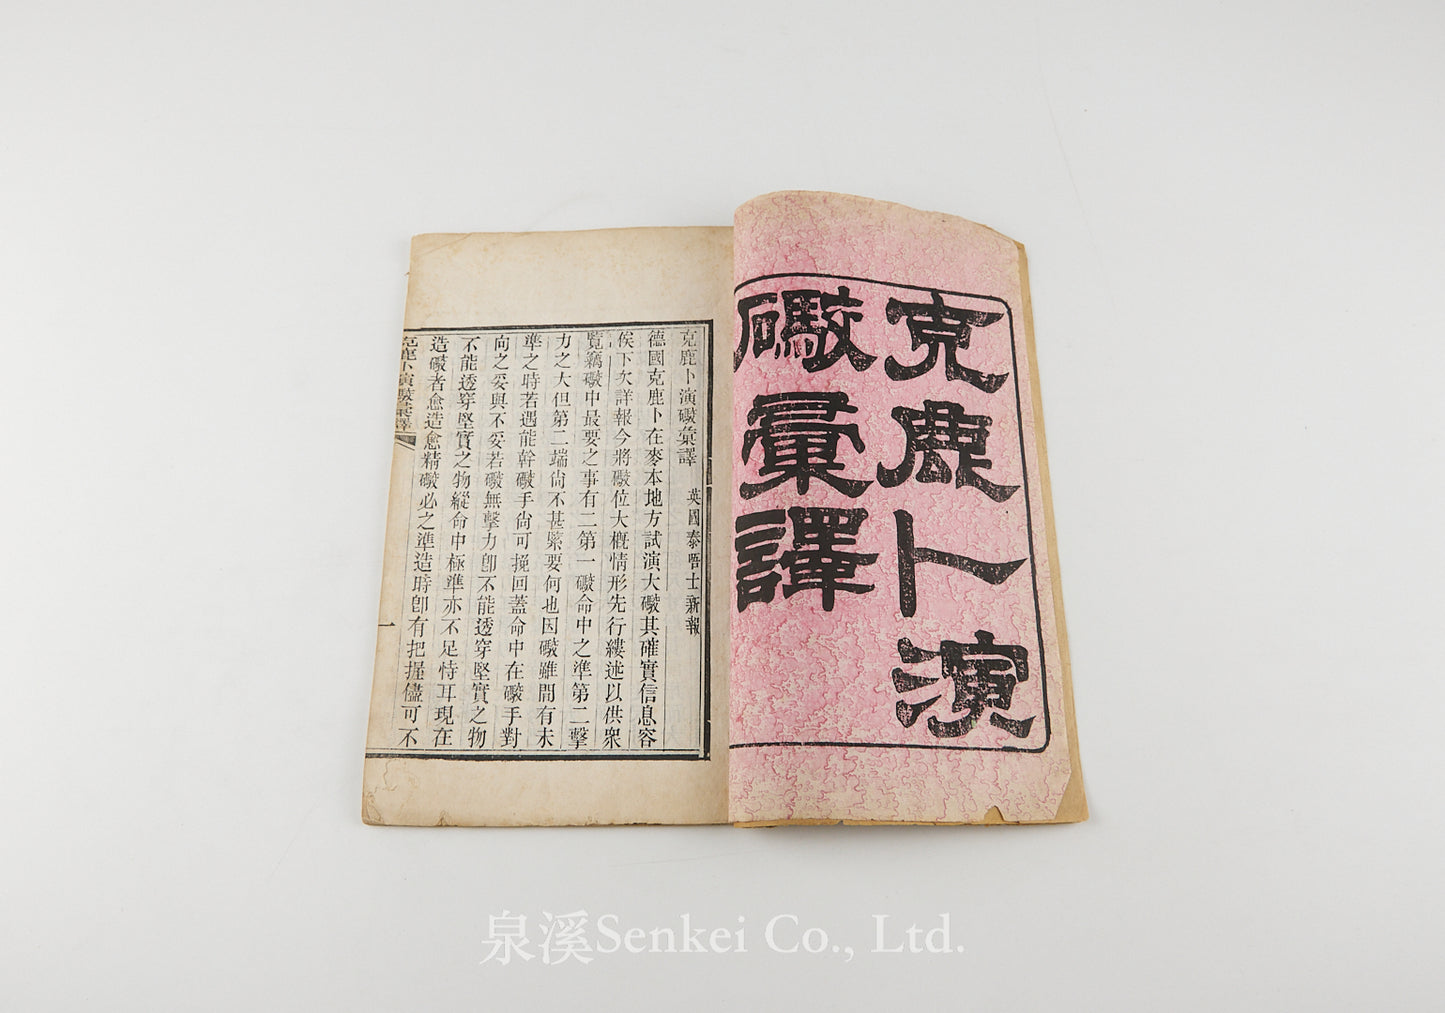 克鹿卜演
礮彙譯
克鹿卜演礮彙譯 英國泰晤士新報
德國克鹿卜在麥本地方試演大礮其確實信息容
俟下次詳報今將礮位大概情形先行縷述以供衆
覽竊礮中最要之事有二第一礮命中之準第二擊
力之大但第二端尙不甚緊要何也因礮雖間有未
準之時若遇能幹礮手尙可挽回蓋命中在礮手對
向之妥與不妥若礮無擊力卽不能透穿堅實之物
不能透穿堅實之物縱命中極準亦不足恃耳現在
造礮者愈造愈精礮必之準造時卽有把握儘可不
克鹿卜演礮彙譯
一
泉溪Senkei Co., Ltd.